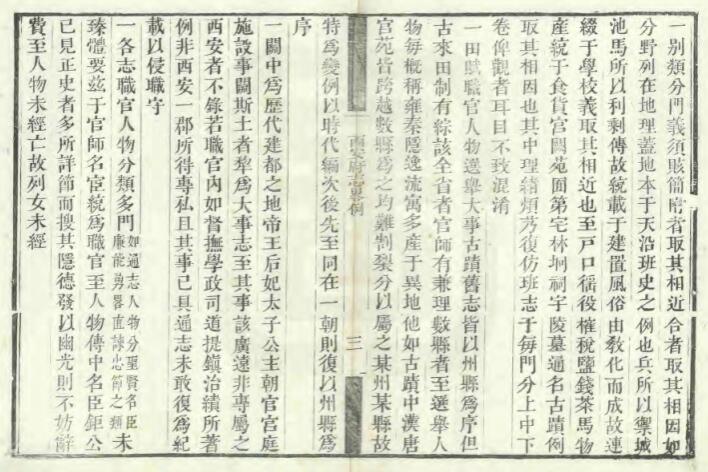 一別類分門義須賅簡府者取其相近合者取其相因如
分野列在地理蓋地本于天沿班史之例也兵所以禦城
池馬所以利剩傳故統載于建置風俗由敎化而成故連
綴于學校義取其相近也至戸口徭役榷稅鹽錢茶馬物
產統于食貨宮闕苑囿第宅林坰祠宇陵墓通名古蹟例
取其相因也其中理緒煩芿復仿班志于每門分上中下
卷俾觀者耳目不致混淆
一田賦職官人物選舉大事古蹟舊志皆以州縣爲序但
古來田制有綜該全省者官師有兼理數縣者至選舉人
物每槪稱雍秦隱逸流寓多產于異地他如古蹟中漢唐
宮苑皆跨越數縣爲之均難割裂分以屬之某州某縣故
西安府志畧例
三
特爲變例以時代編次後先至同在一朝則復以州縣爲
序
一關中爲歷代建都之地帝王后妃太子公主朝官宮庭
施設事關斯土者犂爲大事志至其事該廣遠非專屬之
西安者不錄若職官內如督撫學政司道提鎭治績所著
例非西安一郡所得專私且其事已具通志未敢復爲紀
載以侵職守
一各志職官人物分類多門如通志人物分聖賢名臣廉能勇畧直諫忠節之類未
臻體要茲于官師名臣統爲職官至人物傳中名臣鉅公
已見正史者多所詳節而搜其隱德發以幽光則不妨辭
費至人物未經亡故列女未經